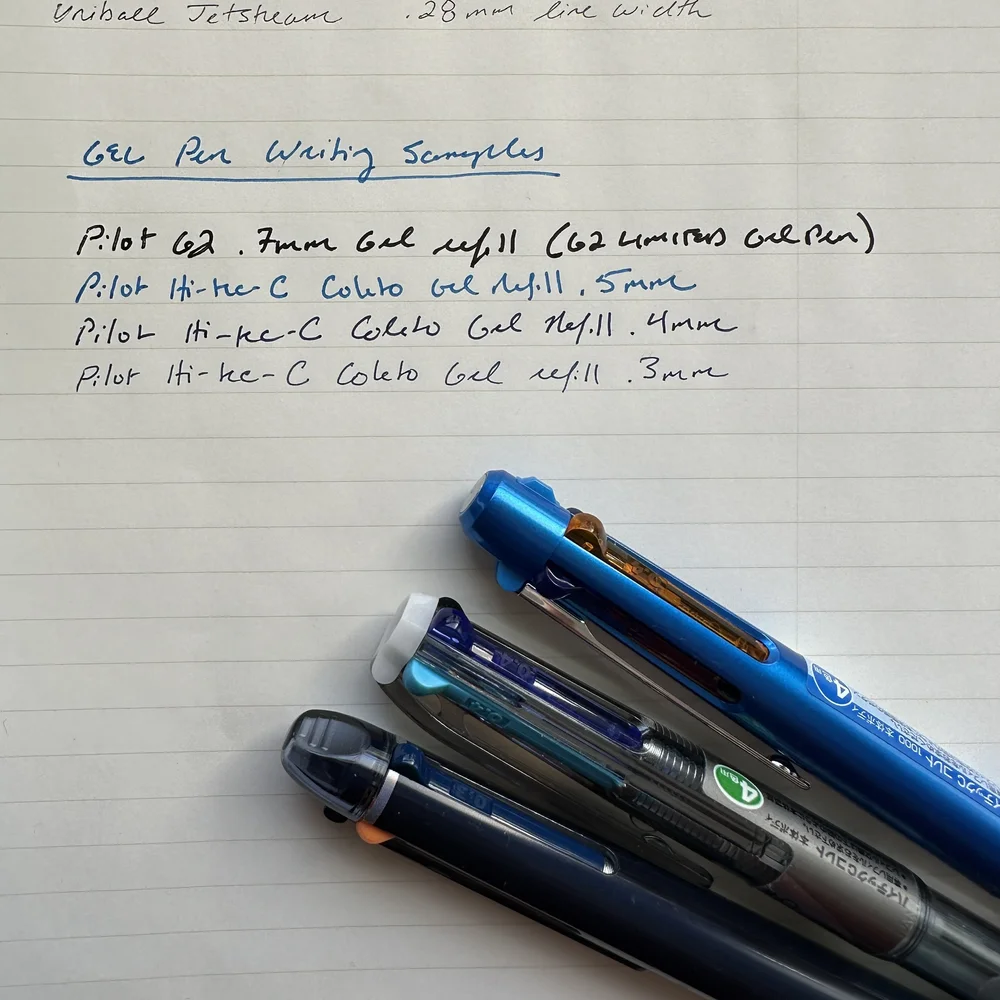 Uniball Jetstream .28mm line width
Gel Pen Writing Samples
Pilot G2 .7mm Gel refill (G2 LIMITED Gel Pen)
Pilot Hi-tec-C Coleto Gel Refill .5mm
Pilot Hi-tec-C Coleto Gel Refill .4mm
Pilot Hi-tec-C Coleto Gel refill .3mm
4色用
ハイテックC コレト 1000 本体ボディ
4色用
ハイテックCコレト 本体ボディ